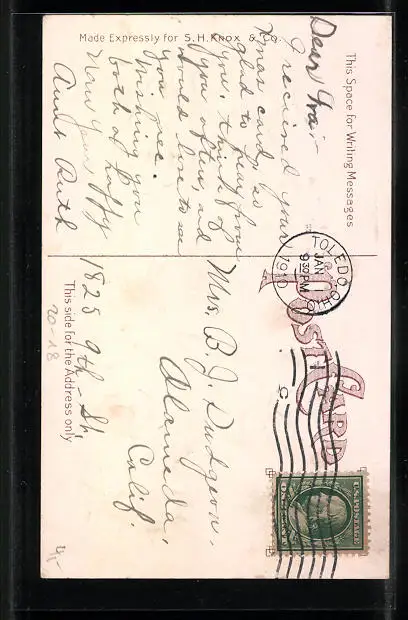 Made Expressly for S.H. Knox & Co.
This Space for Writing Messages
Dear
I received your
Xmas card, so
glad to hear from
you, think of
you often, and
would love to see
you gee.
Wishing you
both a happy
New Year
Aunt Ruth
POST CARD
TOLEDO, OHIO
JAN 1
9 30 PM
191
C
U.S. POSTAGE
Mrs. B. J. Dudgeon.
Alameda,
Calif.
1825 9th St.
This side for the Address only
20-18